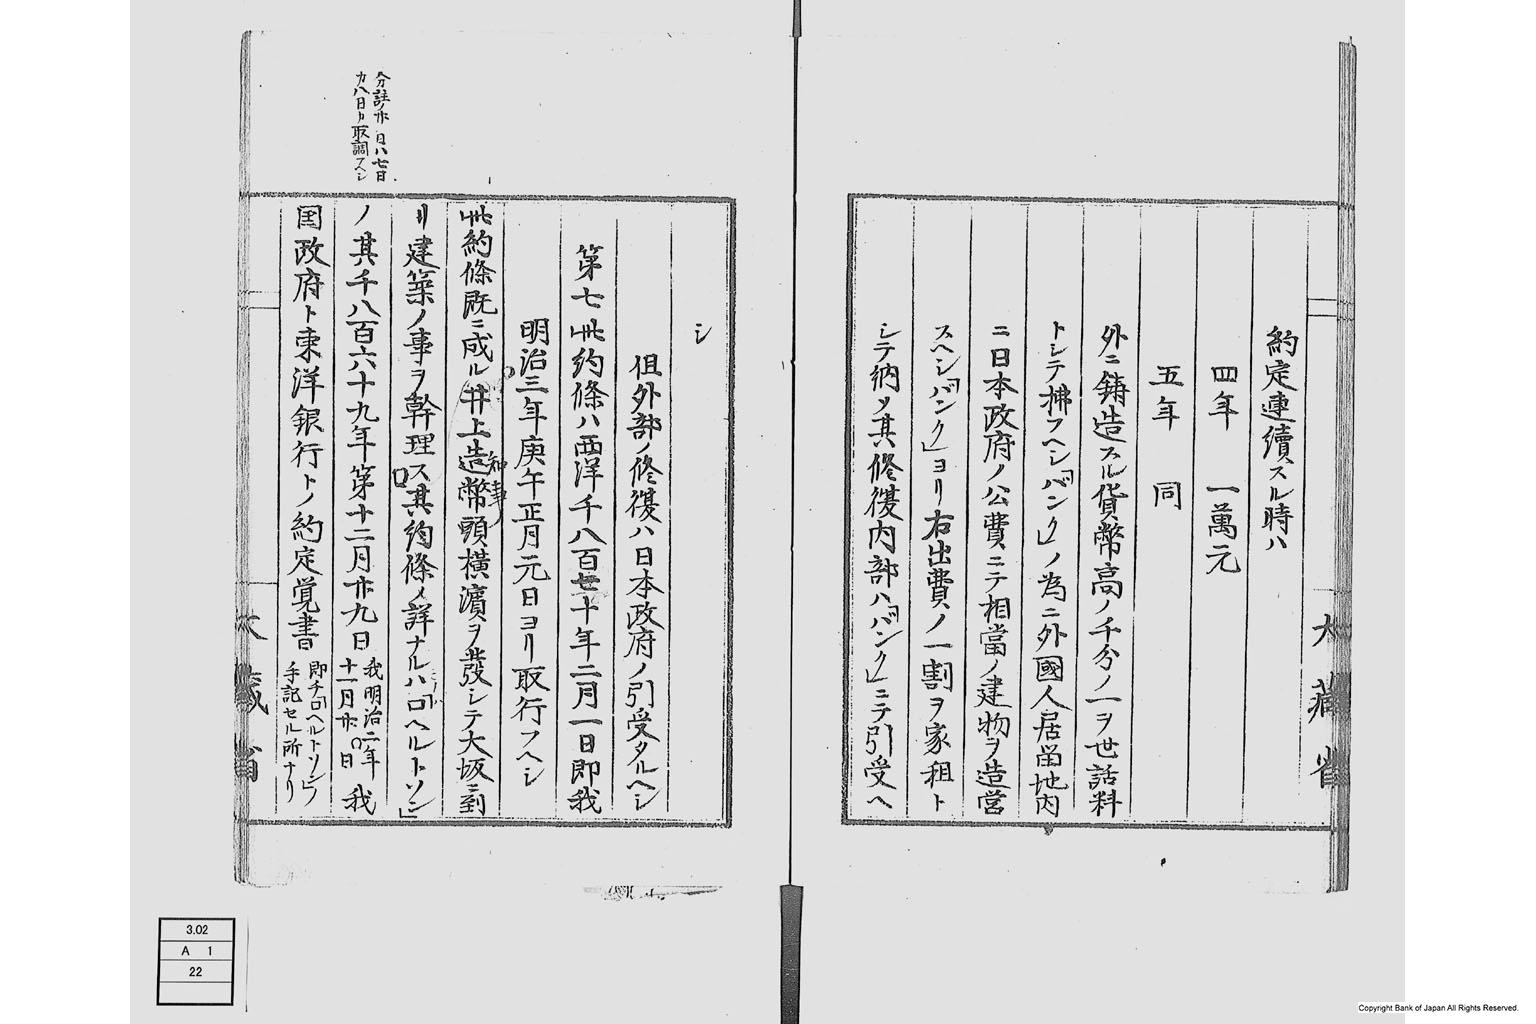 約定連續スル時ハ
四年　一萬元
五年　同
外ニ鋳造スル貨幣高ノ千分ノ一ヲ世話料
トシテ拂フヘシ「バンク」ノ為ニ外國人居留地内
ニ日本政府ノ公費ニテ相當ノ建物ヲ造営
スヘシ「バンク」ヨリ右出費ノ一割ヲ家租ト
シテ納メ其修復内部ハ「バンク」ニテ引受ヘ
大藏省
シ
但外部ノ修復ハ日本政府ノ引受タルヘシ
第七此約條ハ西洋千八百七十年二月一日即我
明治三年庚午正月元日ヨリ取行フヘシ
此約條既ニ成ル井上造幣頭横濱ヲ發シテ大坂ニ到
知事
リ建築ノ事ヲ幹理ス其約條ノ詳ナルハ「ロヘルトソン」
ノ其千八百六十九年第十二月廿九日 我明治二年十一月廿 日 我
国政府ト東洋銀行トノ約定覚書 即チ「ロヘルトソン」ノ手記セル所ナリ
分註ノ廿 日ハ七日
カ八日カ取調フヘシ
大藏省
3.02
A 1
22
Copyright Bank of Japan All Rights Reserved.